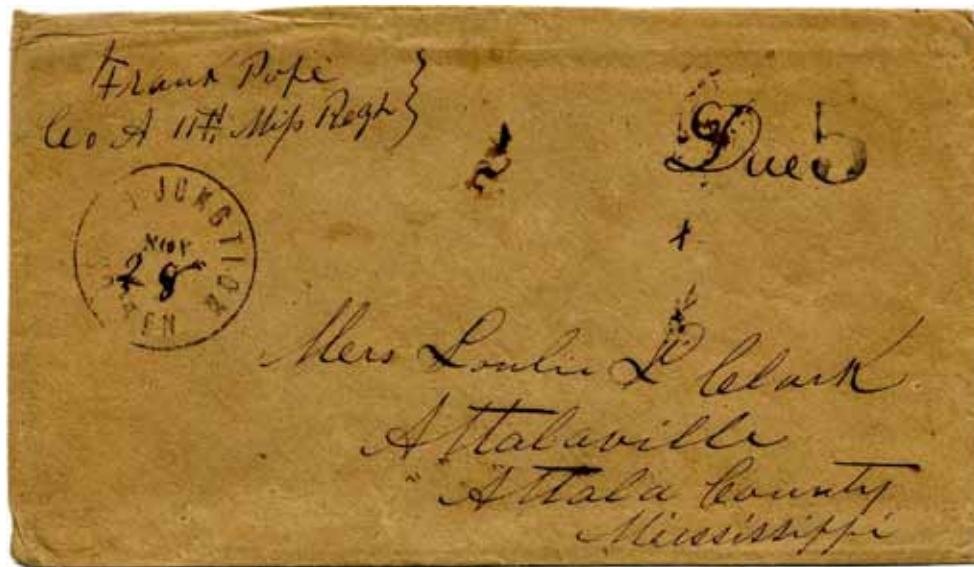 Frank Pope
Co A 11th Miss Regt
Due 5
JUNCTION
NOV
28
TENN
Miss Loulie P Clark
Attalaville
" " Attala County
Mississippi